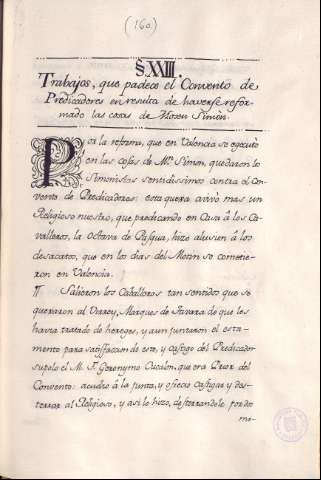 (160)
§. XXIII.
Trabajos, que padece el Convento de
Predicadores en resulta de haverse refor-
mado las cosas de Mosen Simòn.
Por la reforma, que en Valencia se egecutò
en las cosas de Mn. Simon, quedaron los
Simonistas sentidissimos contra el Con-
vento de Predicadores: esta quexa avivò mas un
Religioso nuestro, que predicando en Casa à los Ca-
valleros, la octava de Pasqua, hizo alusion à los
desacatos, que en los dias del Motin se cometie-
ron en Valencia.
¶ Salieron los Caballeros tan sentidos que se
quexaron al Virrey, Marques de Tavara de que les
havia tratado de hereges, y aun juntaron el esta-
mento para satisfaccion de este, y castigo del Predicador
supolo el M. F. Geronymo Cucalòn, que era Prior del
Convento: acudiò à la junta, y ofreciò castigar y des-
terrar al Religioso, y asi lo hizo, desterrandole por do
me-